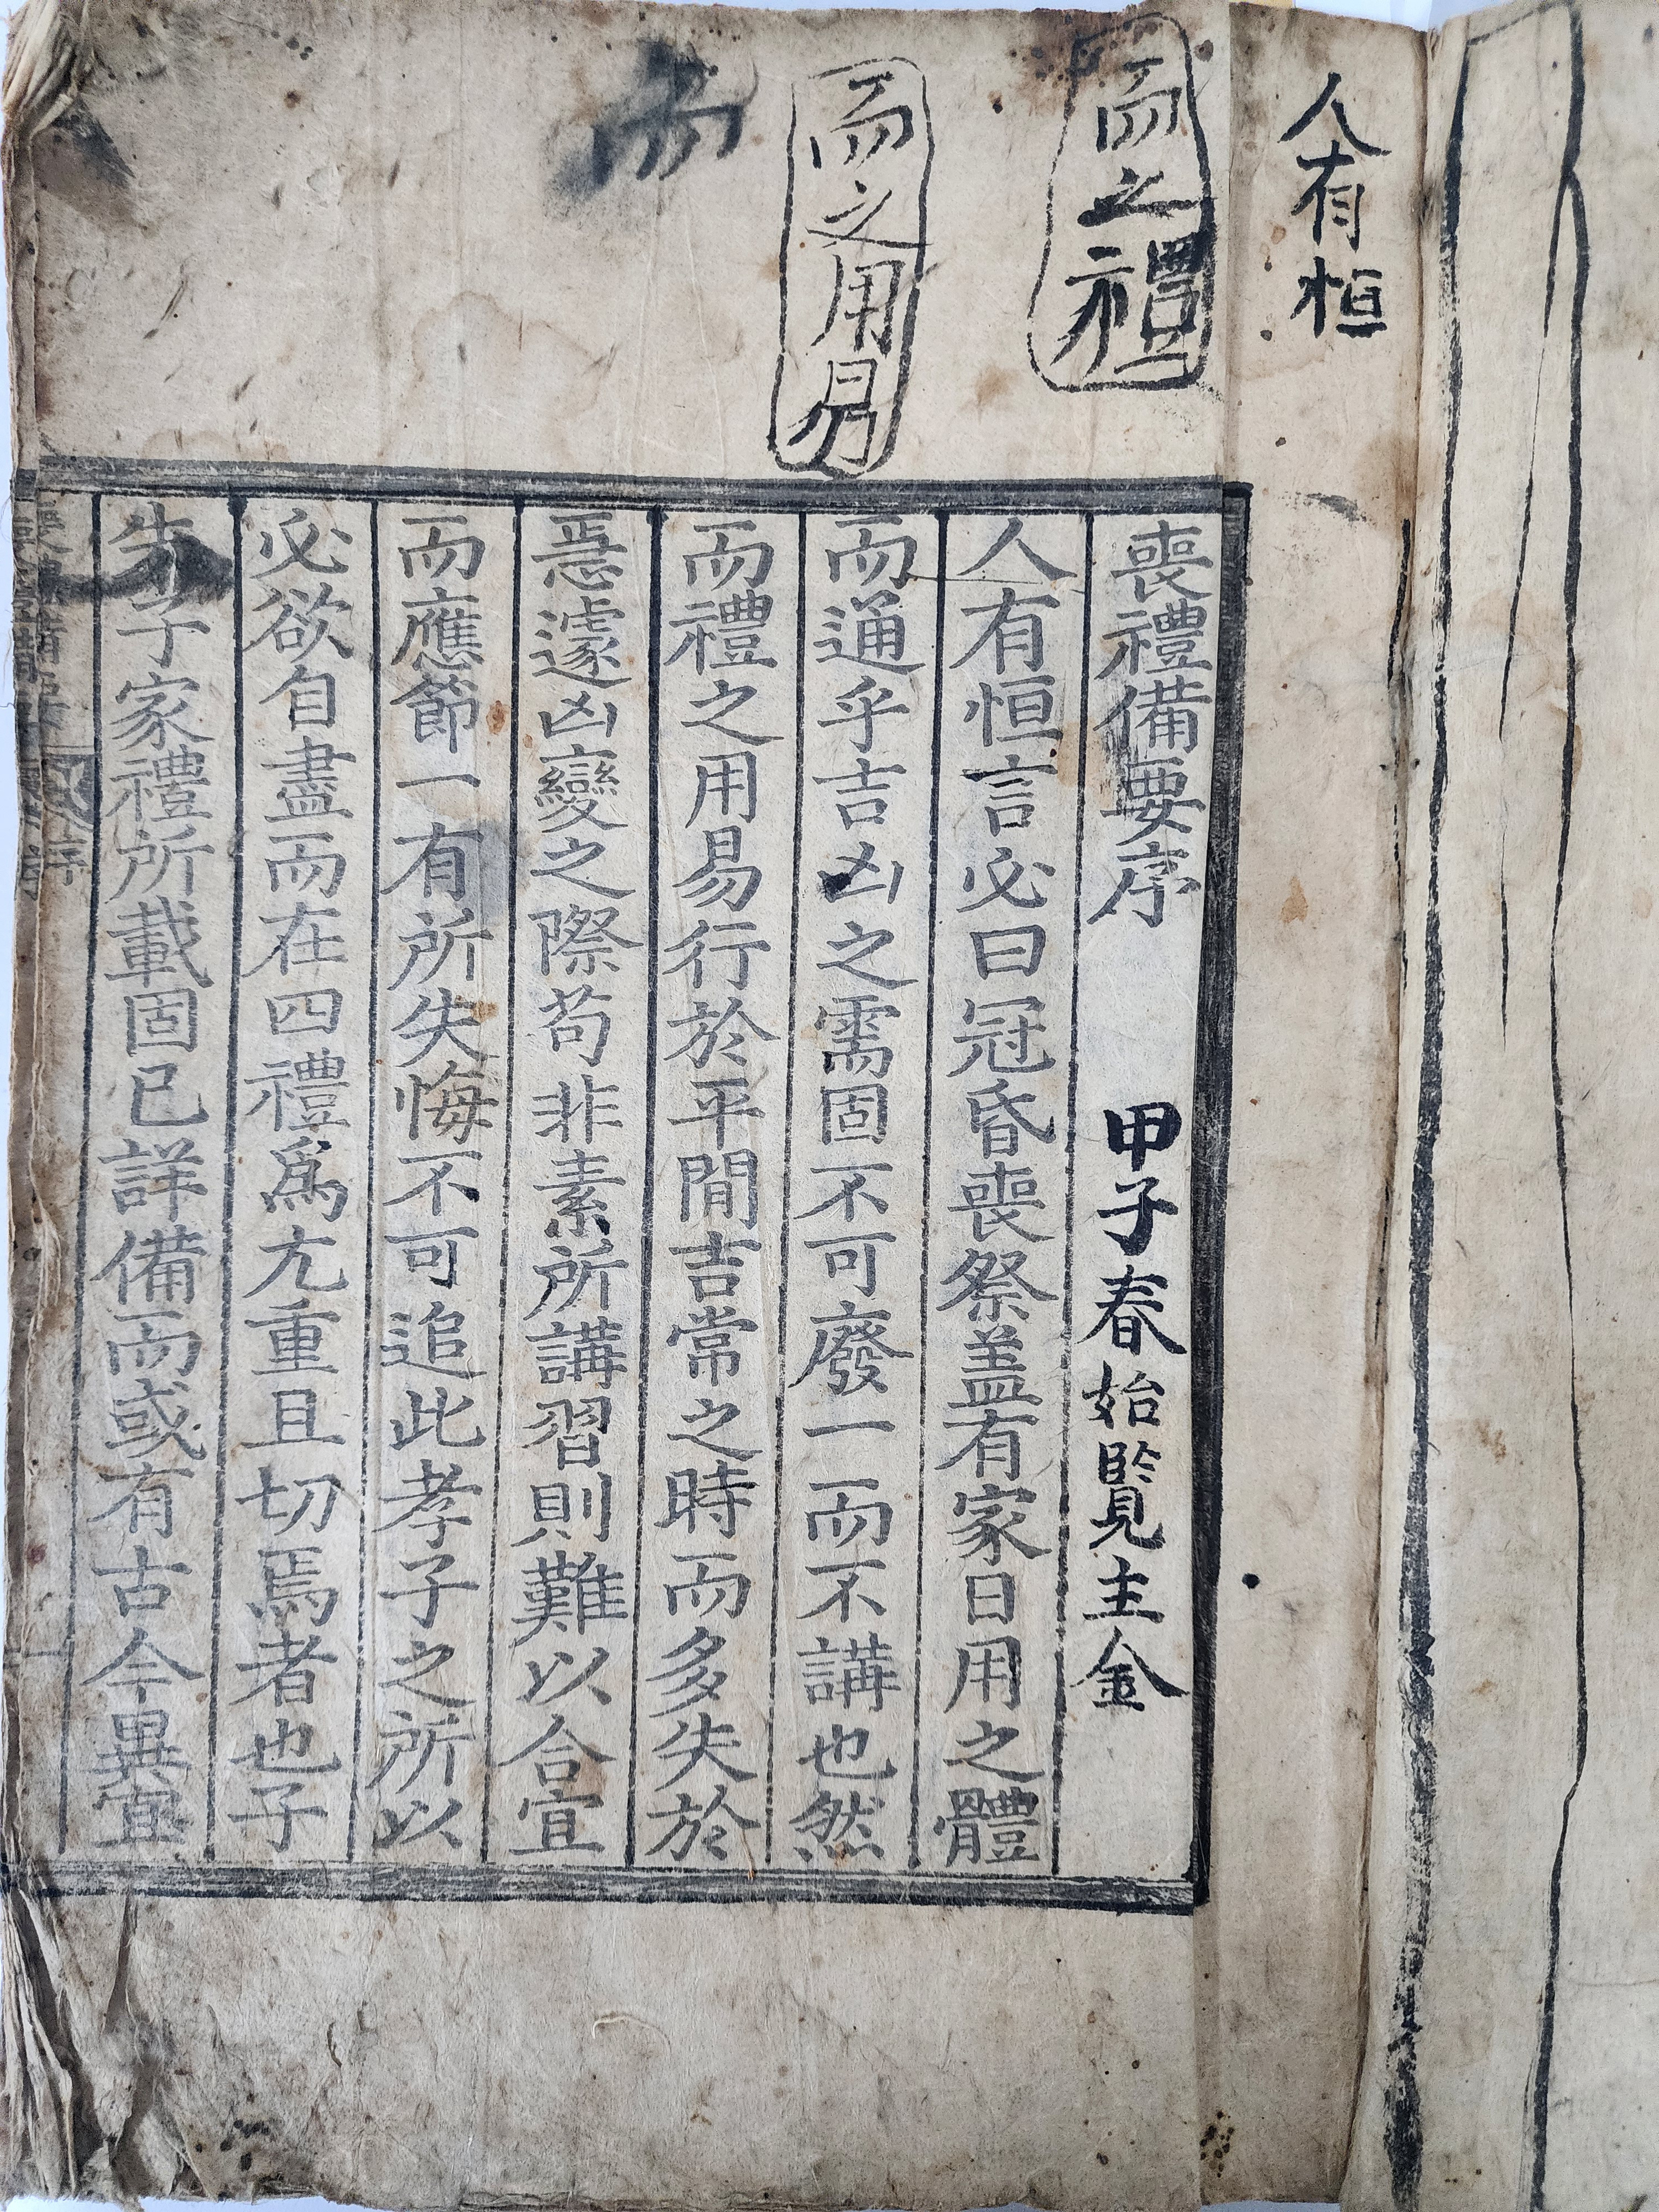 人有恒
而之禮
而之用易
而
喪禮備要序
甲子春始覽主金
人有恒言必曰冠昏喪祭盖有家日用之體
而通乎吉凶之需固不可廢一而不講也然
而禮之用易行於平閒吉常之時而多失於
遑遽凶變之際苟非素所講習則難以合宜
而應節一有所失悔不可追此孝子之所以
必欲自盡而在四禮爲尤重且切焉者也子
朱子家禮所載固已詳備而或有古今異宜